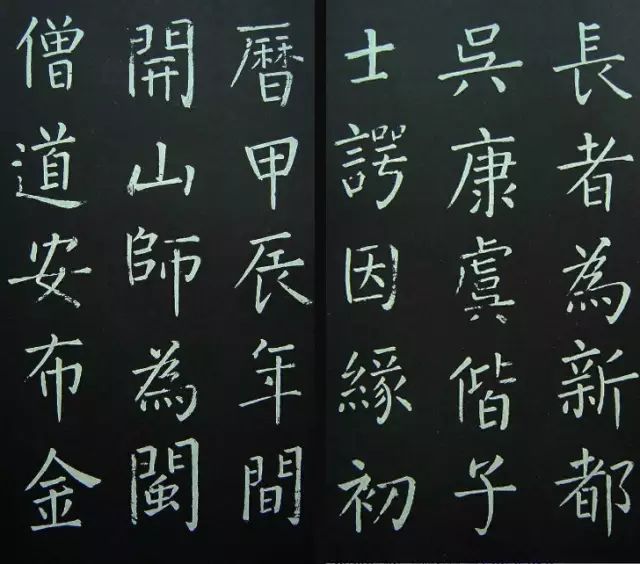 長者為新都
吳康虞偕子
士諤因緣初
曆甲辰年間
開山師為閩
僧道安布金